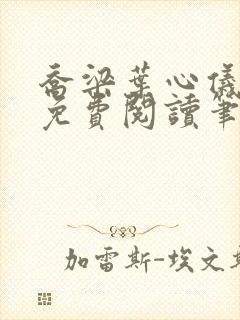 喬梁葉心儀
免費閱讀筆
加雷斯-埃文斯